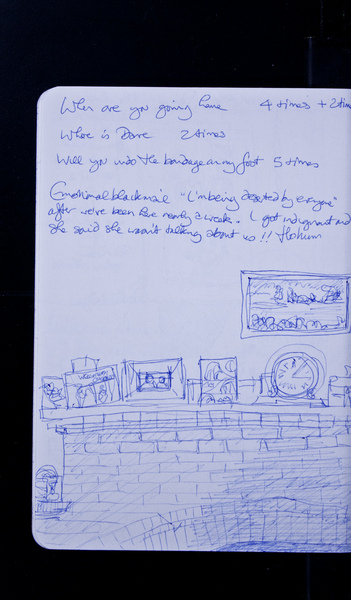 When are you going home 4 times + 2 times
Where is Dave 2 times
Will you undo the bandage on my foot 5 times
Emotional blackmail "I'm being deserted by everyone"
after we've been here nearly a week. I got indignant and
she said she wasn't talking about us!! Hokum